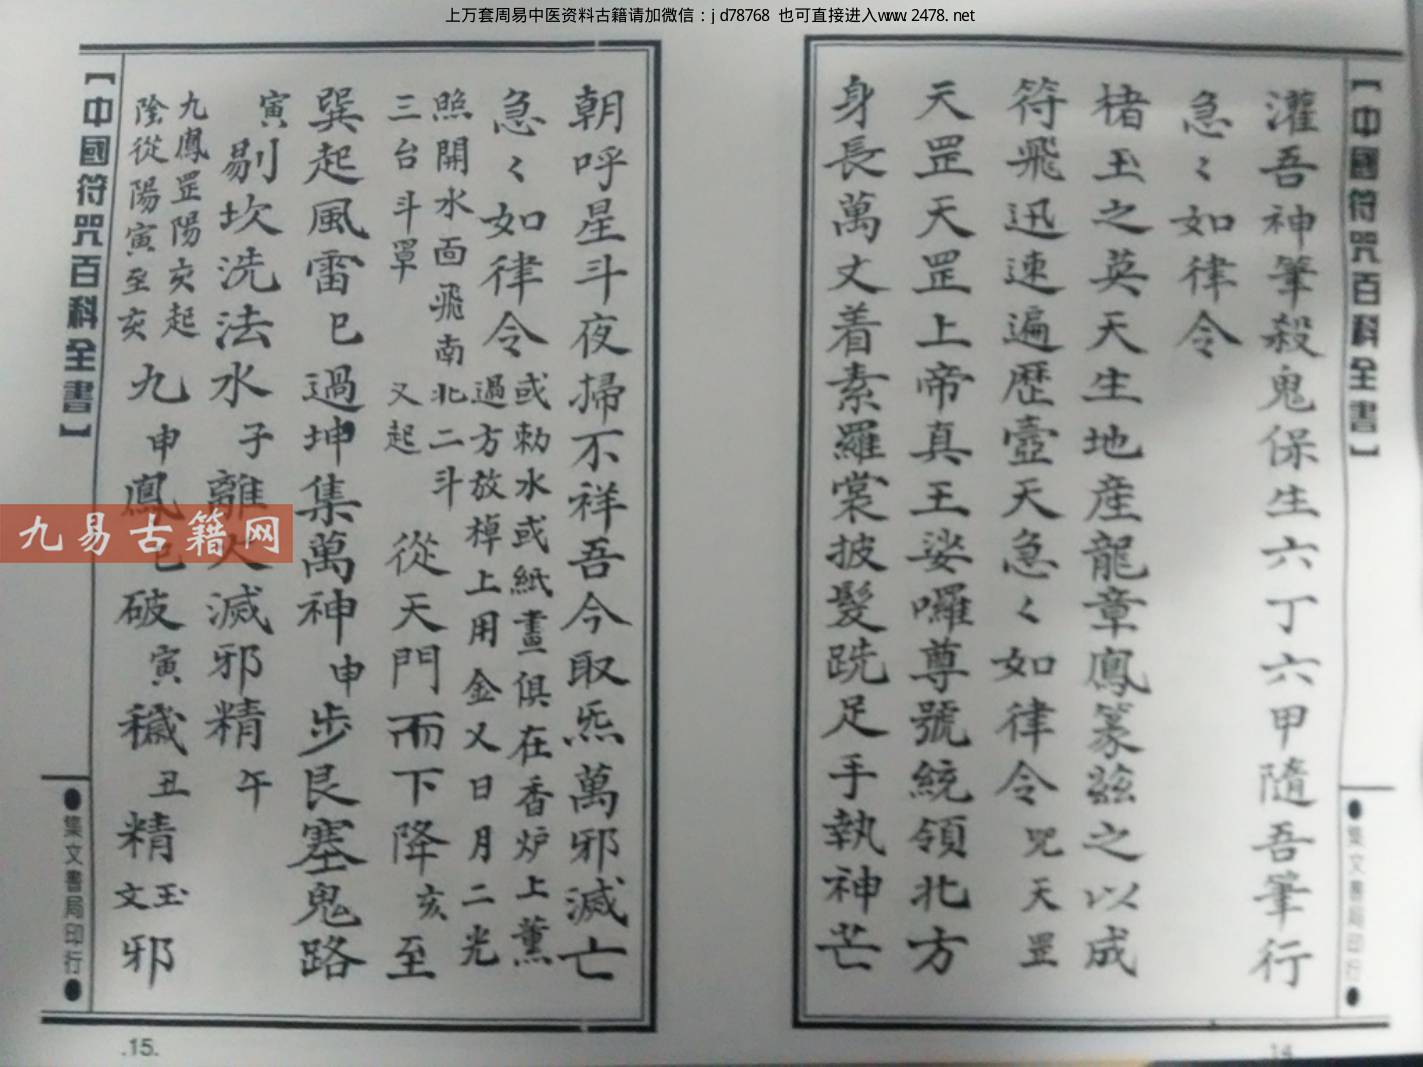 上万套周易中医资料古籍请加微信：jd78768 也可直接进入www.2478.net
【中國符咒百科全書】
灌吾神筆殺鬼保生六丁六甲隨吾筆行
急〻如律令
楮玉之英天生地産龍章鳳篆茲之以成
符飛迅速遍歴壼天急〻如律令 咒天罡
天罡天罡上帝真王娑囉尊號統領北方
身長萬丈着素羅裳披髮跣足手執神芒
●集文書局印行●
14
朝呼星斗夜掃不祥吾今取炁萬邪滅亡
急〻如律令
或勅水或紙畫俱在香炉上薰
過方放棹上用金又日月二光
照開水面飛南北二斗
三台斗罩 又起
從天門而下降亥至
巽起風雷巳過坤集萬神申步艮塞鬼路
寅剔坎洗法水子離火滅邪精午
九鳳罡陽亥起
陰從陽寅至亥
九申鳳巳破寅穢丑精玉文邪
【中國符咒百科全書】
●集文書局印行●
.15.
九易古籍网